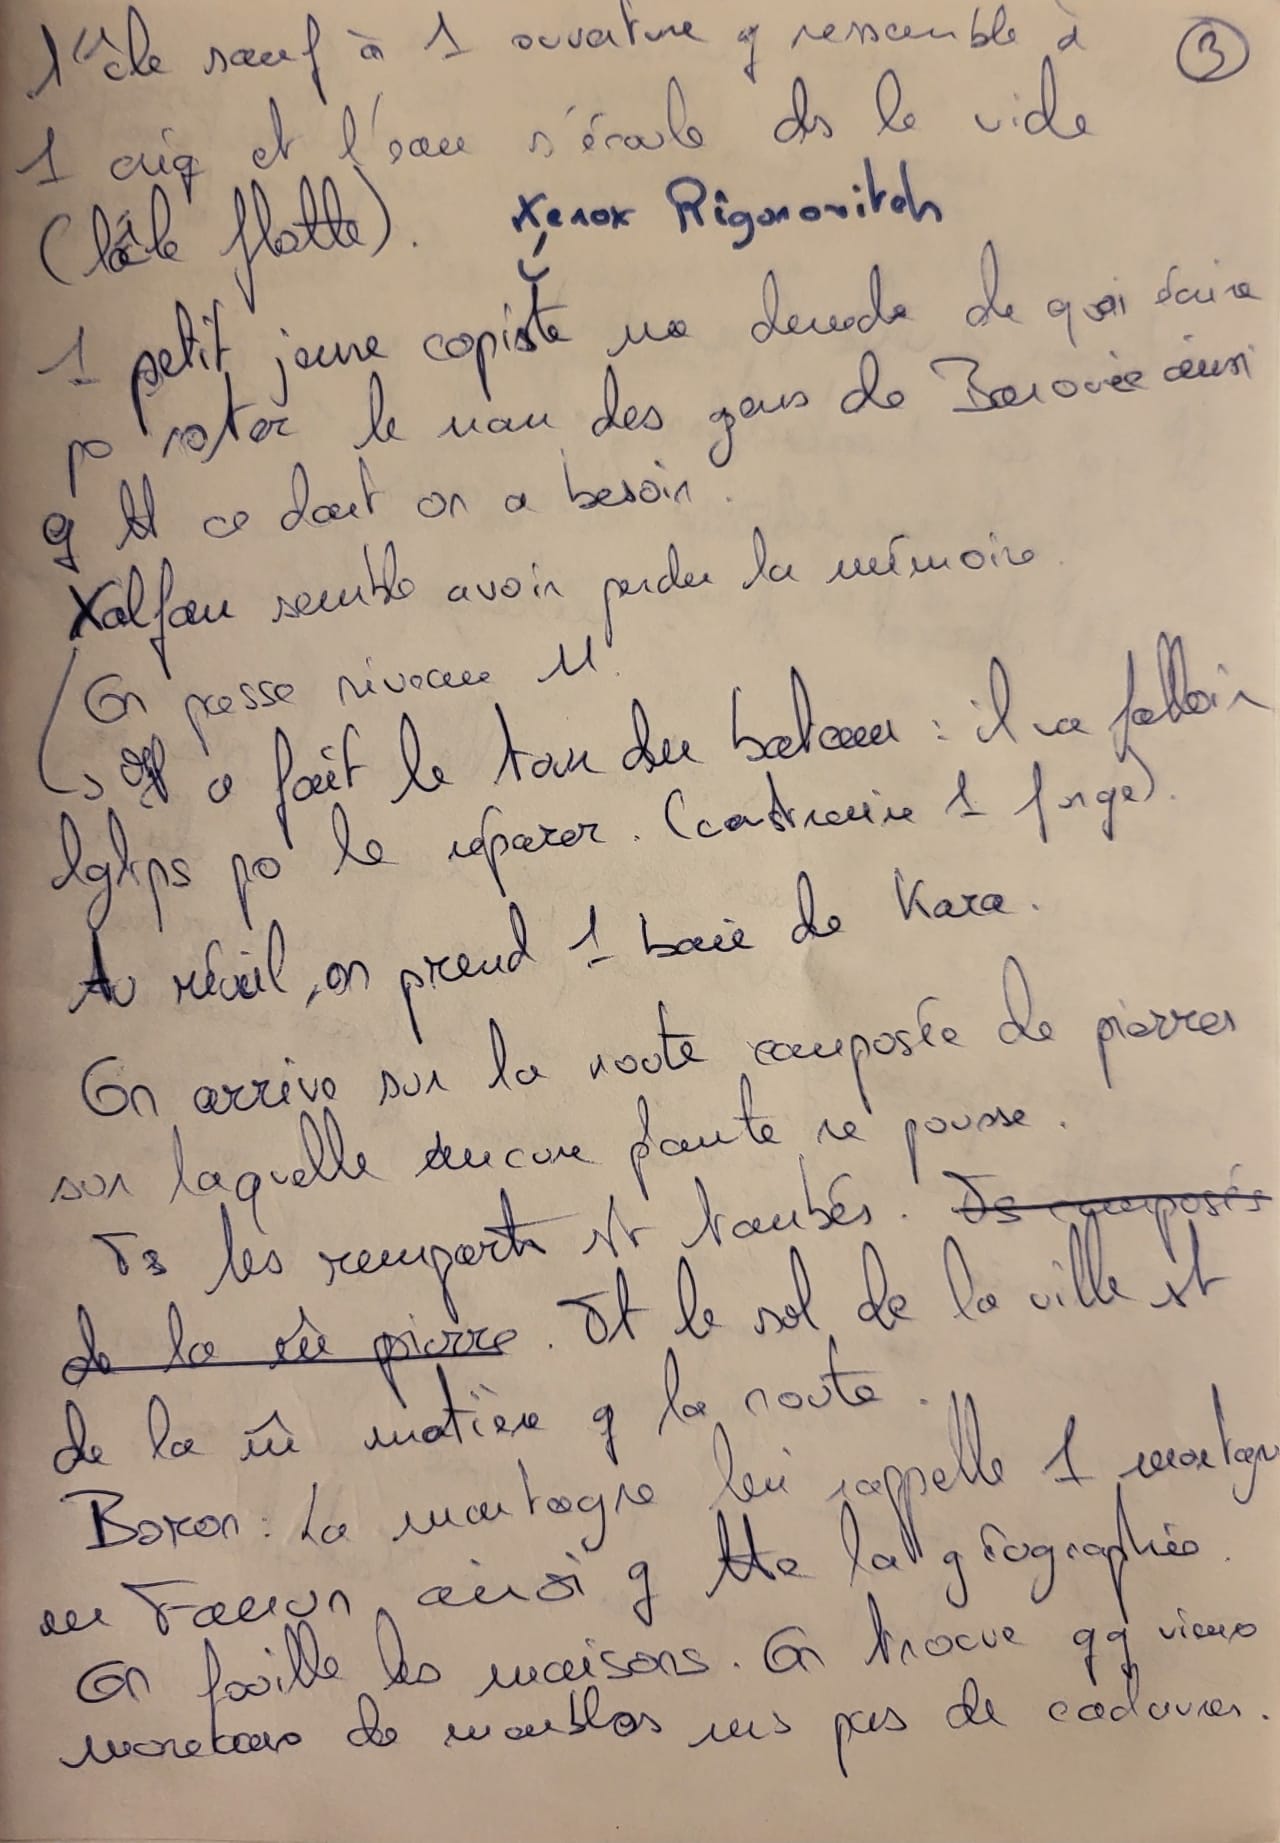 l'île sauf à 1 ouverture q ressemble à
③
1 criq et l'eau s'écoule ds le vide
(l'île flotte).
Xenox Rigonovitch
1 petit jeune copiste me demde de quoi écrire
po noter le nom des gens de Barovie ainsi
q tt ce dont on a besoin.
Xalfou semble avoir perdu la mémoire.
On passe niveau 11.
↳ a fait le tour du bateau : il va falloir
lgtps po le réparer. (construire 1 forge).
Au réveil, on prend 1 baie de Kara.
On arrive sur la route composée de pierres
sur laquelle aucune plante ne pousse.
Ts les remparts st tombés. Ts composés
de la m̂ pierre. Tt le sol de la ville st
de la m̂ matière q la route.
Boron : La montagne lui rappelle 1 montagn
en Faerun ainsi q tte la géographie.
On fouille les maisons. On trouve qq vieux
morceaux de meubles ms pas de cadavres.